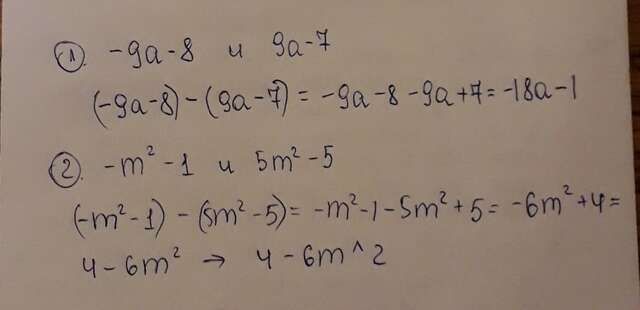 1. -9a-8 и 9a-7
(-9a-8)-(9a-7)=-9a-8-9a+7=-18a-1
2. -m²-1 и 5m²-5
(-m²-1)-(5m²-5)=-m²-1-5m²+5=-6m²+4=
4-6m² → 4-6m^2